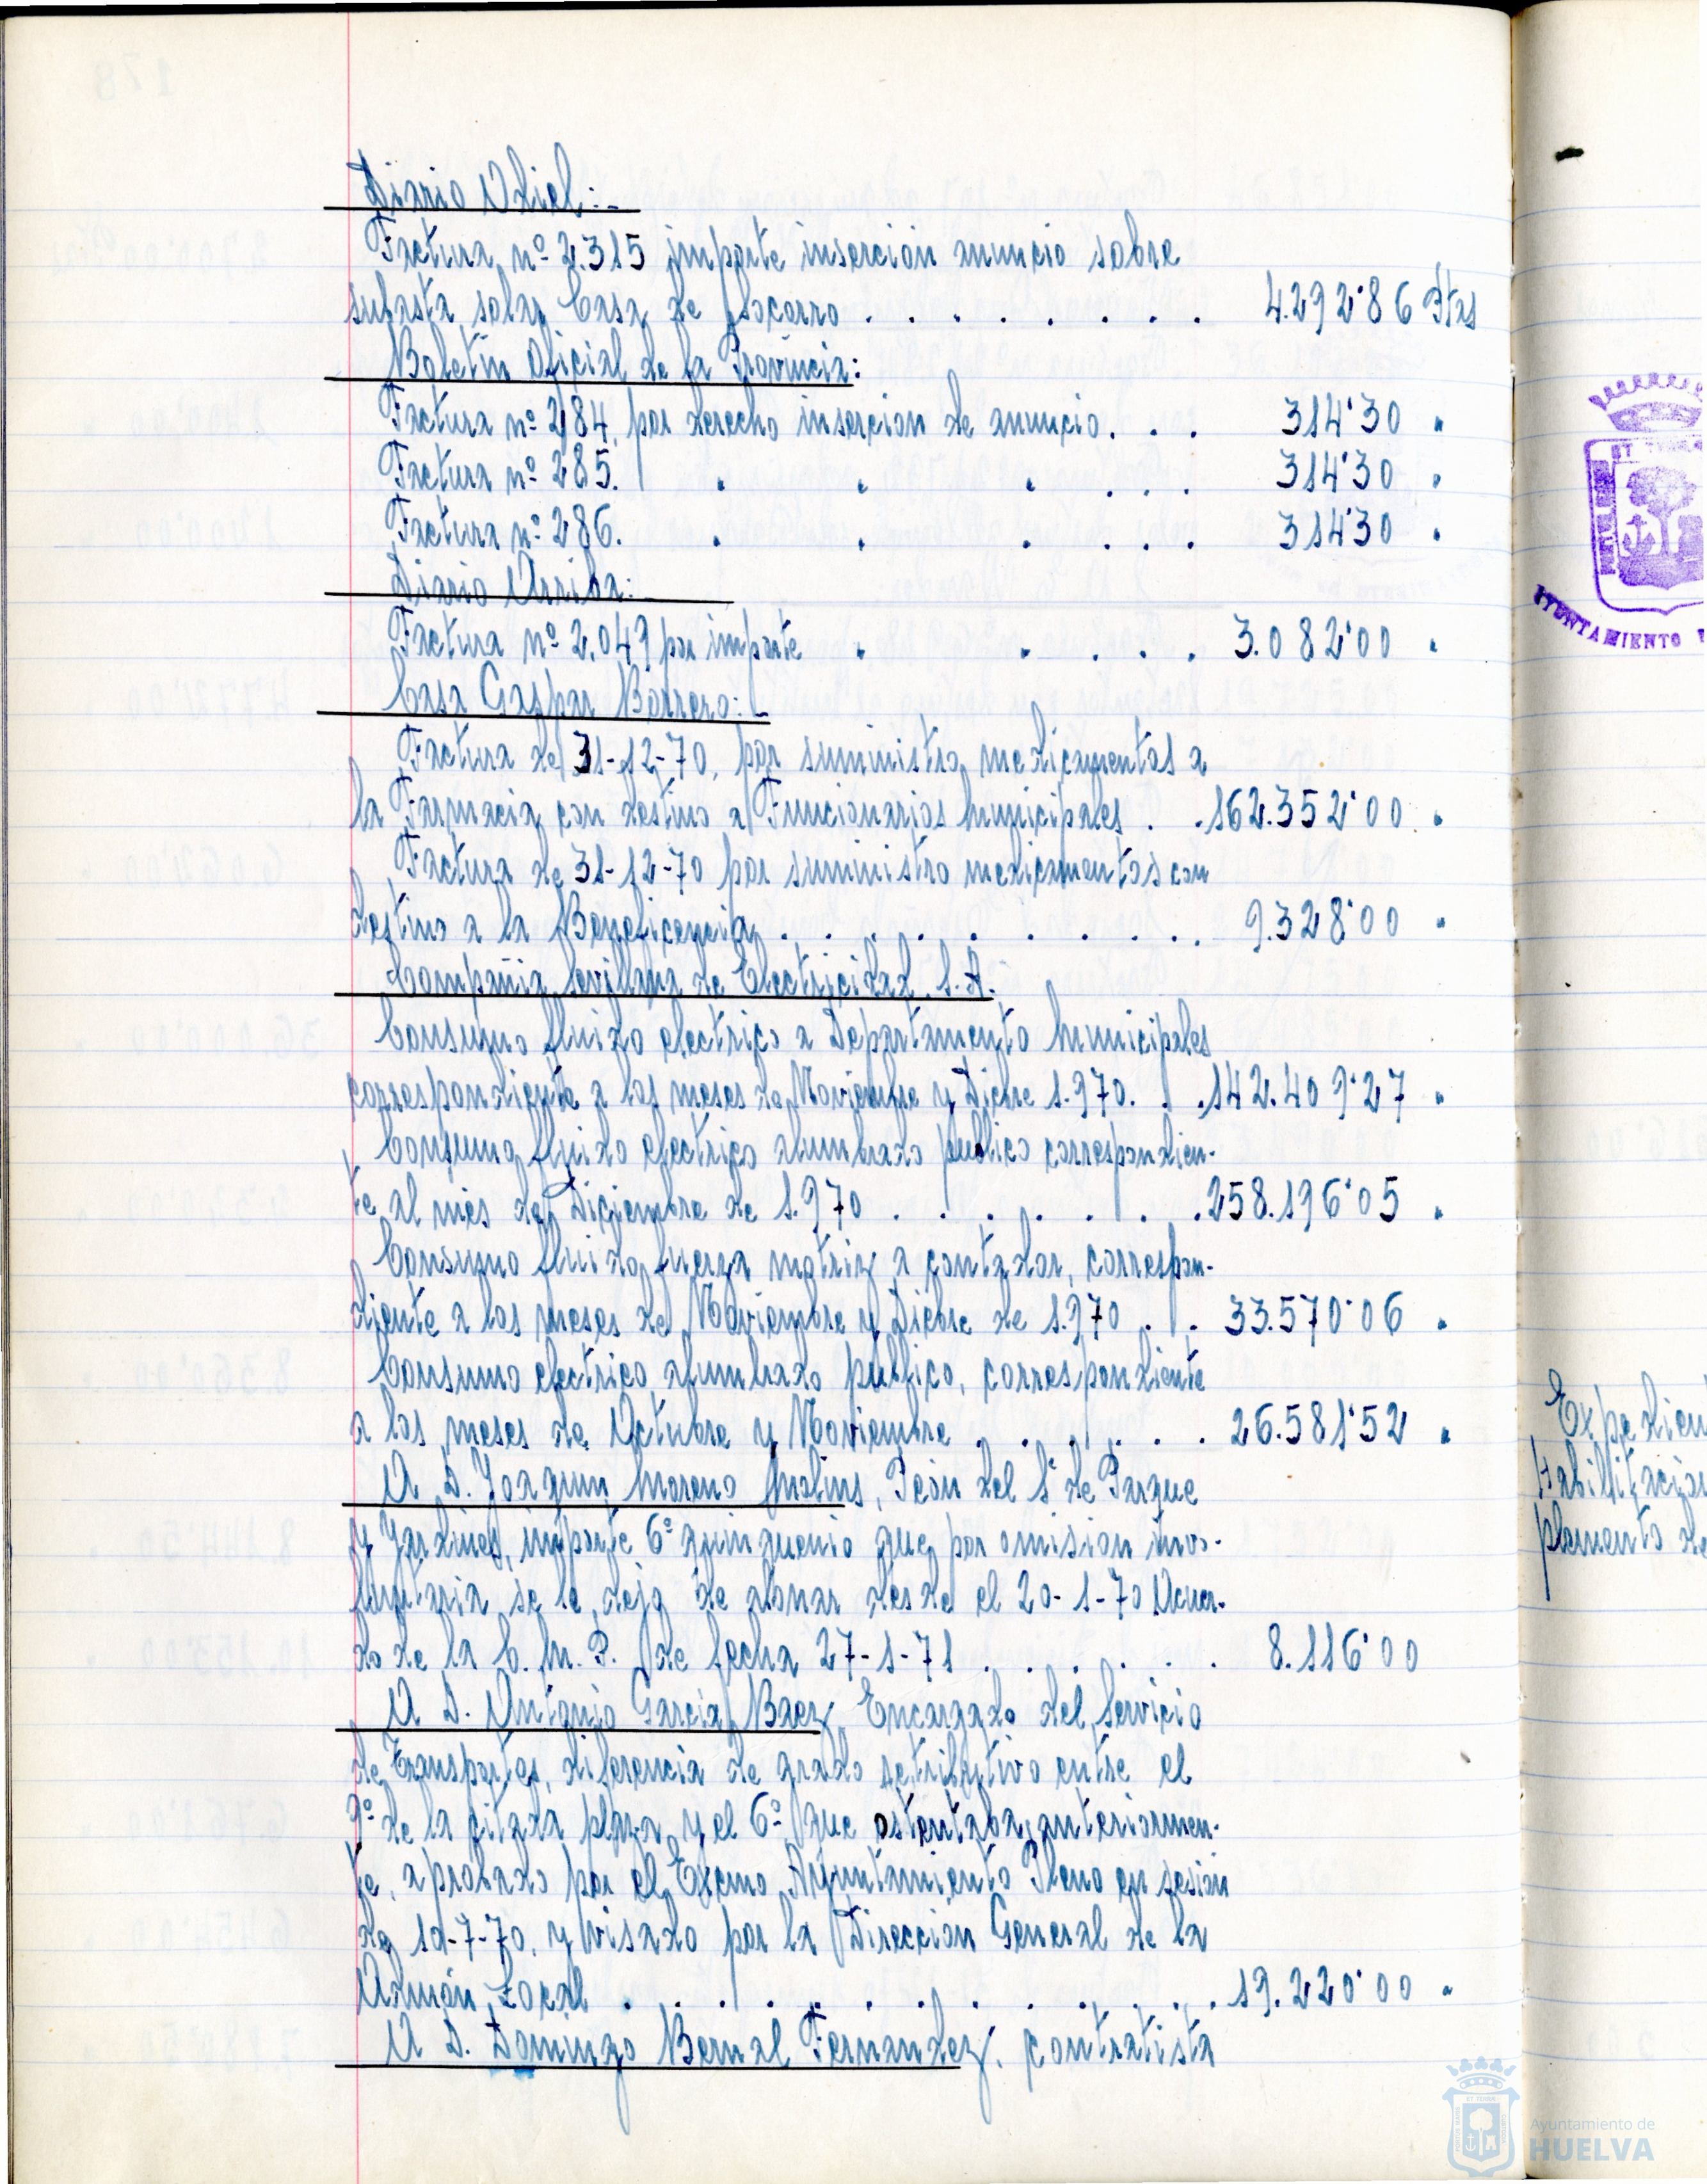 Diario Odiel:-
Factura nº 2.315 importe inserción anuncio sobre
subasta solar Casa de Socorro . . . . . . . . 4.292'86 Ptas
Boletín Oficial de la Provincia:
Factura nº 284, por derecho insercion de anuncio. . . 314'30 "
Factura nº 285. " " " . . . 314'30 "
Factura nº 286. " " " . . . 314'30 "
Diario Arriba:
Factura nº 2.049 por importe " " . . . 3.082'00 "
Casa Gaspar Borrero:-
Factura de 31-12-70, por suministro medicamentos a
la Farmacia con destino a Funcionarios Municipales . . 162.352'00 "
Factura de 31-12-70 por suministro medicamentos con
destino a la Beneficencia . . . . . . . . . 9.328'00 "
Compañia Sevillana de Electricidad. S.A.
Consumo fluido electrico a Departamento Municipales
correspondiente a los meses de Noviembre y Dicbre 1.970. . . 142.409'27 "
Consumo fluido electrico alumbrado publico correspondien-
te al mes de Diciembre de 1.970 . . . . . . . 258.196'05 "
Consumo fluido fuerza motriz a contador, correspon-
diente a los meses de Noviembre y Dicbre de 1.970 . . 33.570'06 "
Consumo electrico alumbrado publico, correspondiente
a los meses de Octubre y Noviembre . . . . . . 26.581'52 "
A D. Joaquin Moreno Molins, Peón del Sº de Parque
y Jardines, importe 6º quinquenio que por omision invo-
luntaria se le dejo de abonar desde el 20-1-70 Acuer-
do de la C. M. P. de fecha 27-1-71 . . . . . . 8.116'00
A D. Antonio Garcia Baez, Encargado del Servicio
de Transportes, diferencia de grado retributivo entre el
9º de la citada plaza y el 6º que ostentaba anteriormen-
te, aprobado por el Excmo Ayuntamiento Pleno en sesión
de 10-7-70, y visado por la Dirección General de la
Admón Local . . . . . . . . . . . . 19.220'00 "
A D. Domingo Bernal Fernandez, contratista
AYUNTAMIENTO
Expedien
Habilitacion
plemento de
Ayuntamiento de
HUELVA